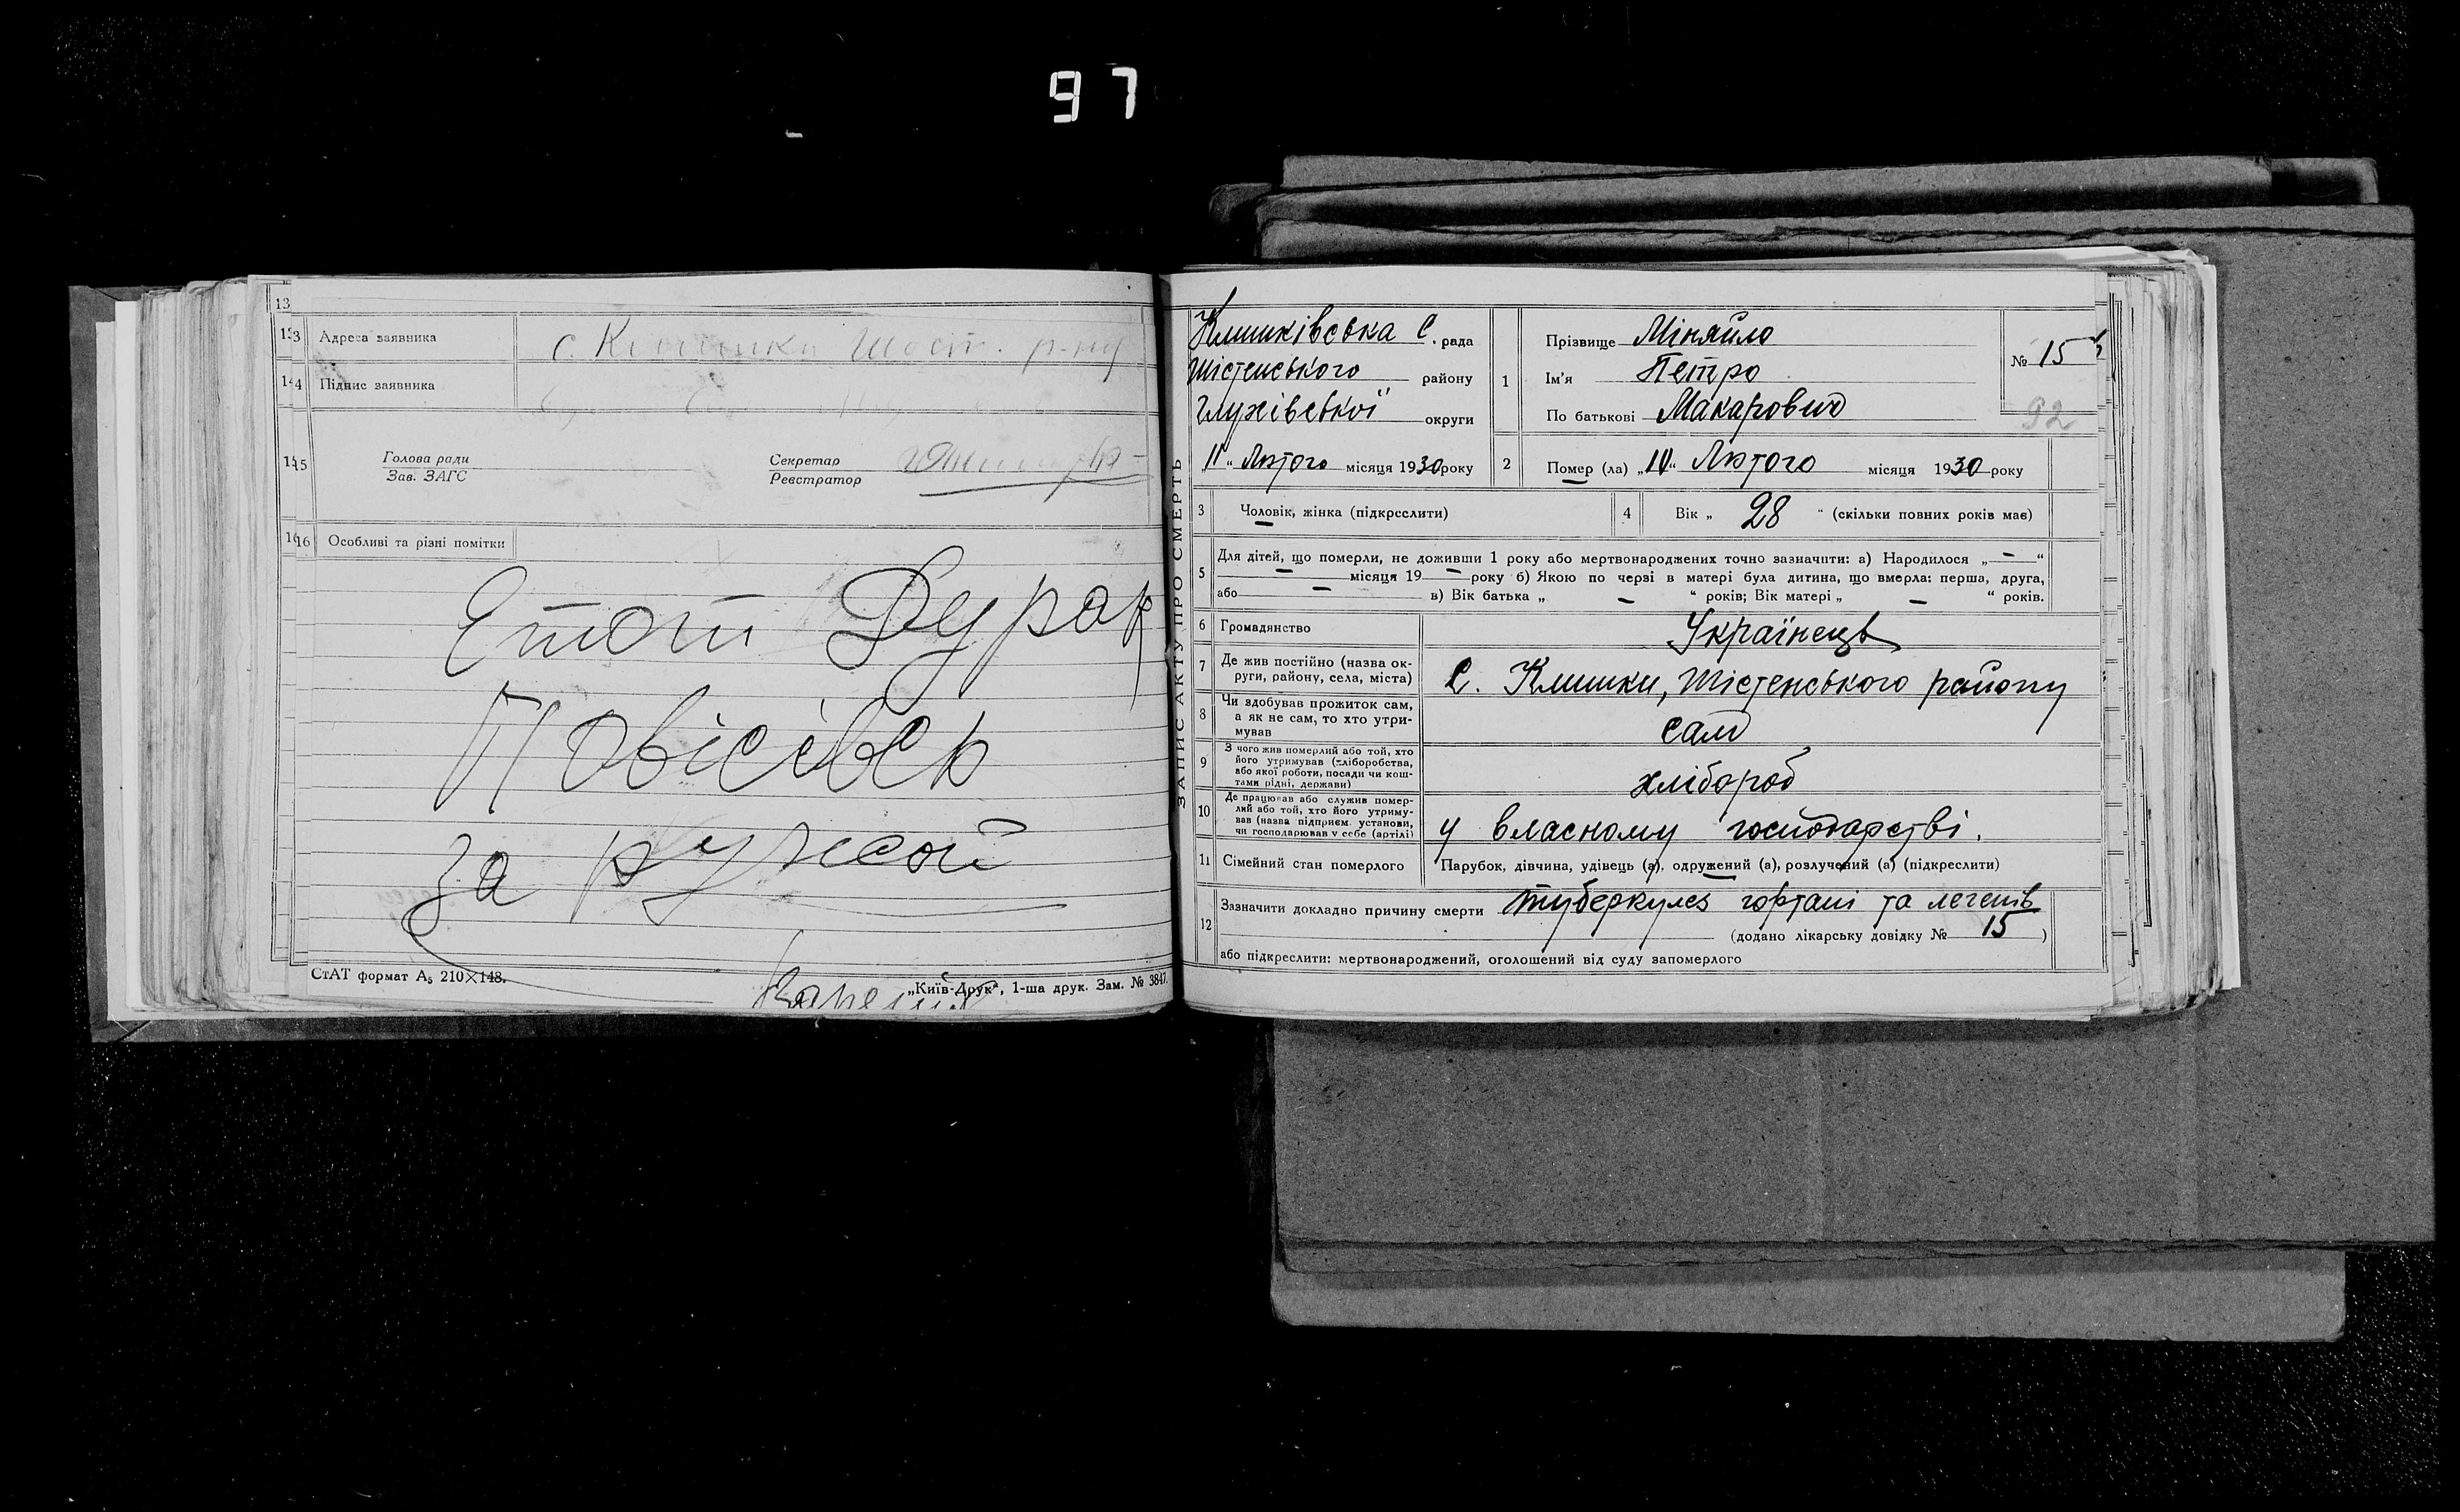 97
13
13 Адреса заявника с. Клишки Шост. р-ну
14 Підпис заявника
15 Голова ради
Зав. ЗАГС
Секретар
Реєстратор
16 Особливі та різні помітки
Етот Дурак
Повісівсь
за ружой
СтАТ формат А5 210×148.
„Київ-Друк“, 1-ша друк. Зам. № 3847.
ЗАПИС АКТУ ПРО СМЕРТЬ
Клишківська С. рада
Шостенського району
Глухівської округи
„11“ Лютого місяця 1930 року
1 Прізвище Міняйло
Ім'я Петро
По батькові Макарович
№ 15
92
2 Помер (ла) „10“ Лютого місяця 1930 року
3 Чоловік, жінка (підкреслити)
4 Вік „ 28 “ (скільки повних років має)
5 Для дітей, що померли, не доживши 1 року або мертвонароджених точно зазначити: а) Народилося „ — “
— місяця 19 — року б) Якою по черзі в матері була дитина, що вмерла: перша, друга,
або — в) Вік батька „ — “ років; Вік матері „ — “ років.
6 Громадянство Українець
7 Де жив постійно (назва ок-
руги, району, села, міста) С. Клишки, Шостенського району
8 Чи здобував прожиток сам,
а як не сам, то хто утри-
мував сам
9 З чого жив померлий або той, хто
його утримував (хліборобства,
або якої роботи, посади чи кош-
тами рідні, держави) хлібороб
10 Де працював або служив помер-
лий або той, хто його утриму-
вав (назва підприєм. установи,
чи господарював у себе (артілі) у власному господарстві.
11 Сімейний стан померлого Парубок, дівчина, удівець (а), одружений (а), розлучений (а) (підкреслити)
12 Зазначити докладно причину смерти туберкулез гортані та легенів
(додано лікарську довідку № 15 )
або підкреслити: мертвонароджений, оголошений від суду запомерлого